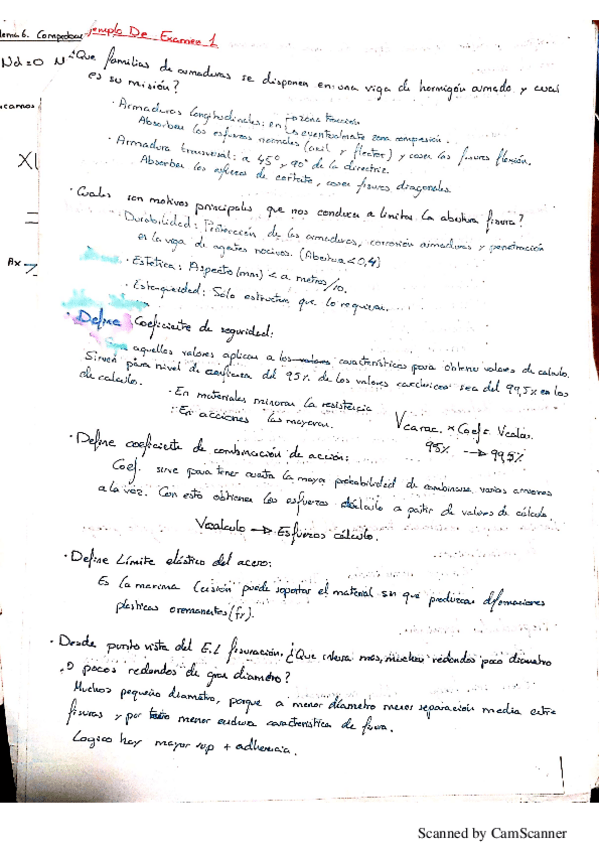 Tema 6. Comprobac
Ejemplo De Examen 1
Nd=0 N
¿Que familias de armaduras se disponen en una viga de hormigón armado y cual
es su misión?
· Armaduras longitudinales: en zona tracción
eventualmente zona compresión.
Absorber los esfuerzos normales (axil y flector) y coser las fisuras flexión.
· Armadura transversal: a 45° y 90° de la directriz.
Absorber los esfuerzos de cortante, coser fisuras diagonales.
· Cuales son motivos principales que nos conduce a limitar la abertura fisura?
· Durabilidad: Protección de las armaduras, corrosión armaduras y penetración
en la viga de agentes nocivos. (Abertura < 0,4)
· Estetica: Aspecto (mm) < a metros/10.
· Estanqueidad: Solo estructuras que lo requieran.
· Define Coeficiente de seguridad:
aquellos valores aplican a los valores caracteristicos para obtener valores de calculo.
Sirven para nivel de confianza del 95% de los valores sea del 99,5% en los
de calculo.
· En materiales minoran la resistencia
· En acciones las mayoran.
Vcarac. × Coef. Vcalcu.
95% → 99,5%
· Define coeficiente de combinación de acción:
Coef. sirve para tener cuenta la maya probabilidad de combinarse varias acciones
a la vez. Con esto obtienen los esfuerzos cálculo a partir de valores de cálculo.
Vcalculo → Esfuerzos cálculo.
· Define Límite elástico del acero:
Es la maxima tensión puede soportar el material sin que produzcan deformaciones
plásticas
· Desde punto vista del E.L fisuración, ¿Que interesa mas, muchos redondos poco diametro
o pocos redondos de gran diametro?
Muchos pequeño diametro, porque a menor diametro menor separación media entre
fisuras y por tanto menor caracteristica de fisura.
Logico hay mayor sup + adherencia.
Scanned by CamScanner